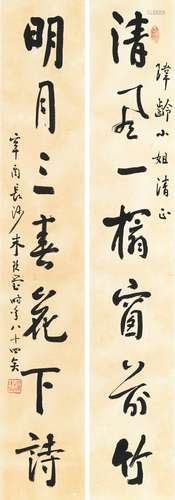 瑋齡小姐清正
清風一榻窗前竹
明月三春花下詩
辛酉長沙朱玖瑩時年八十四矣